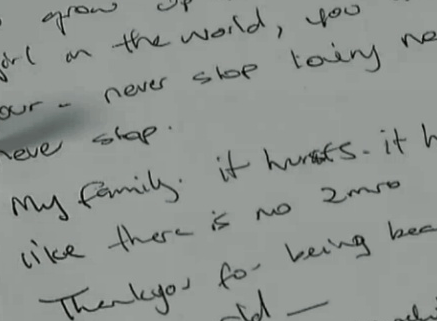 grow up
girl in the world, you
our - never stop
never stop.
My family. it hurts. it h
like there is no 2mro
Thankyou for being bea